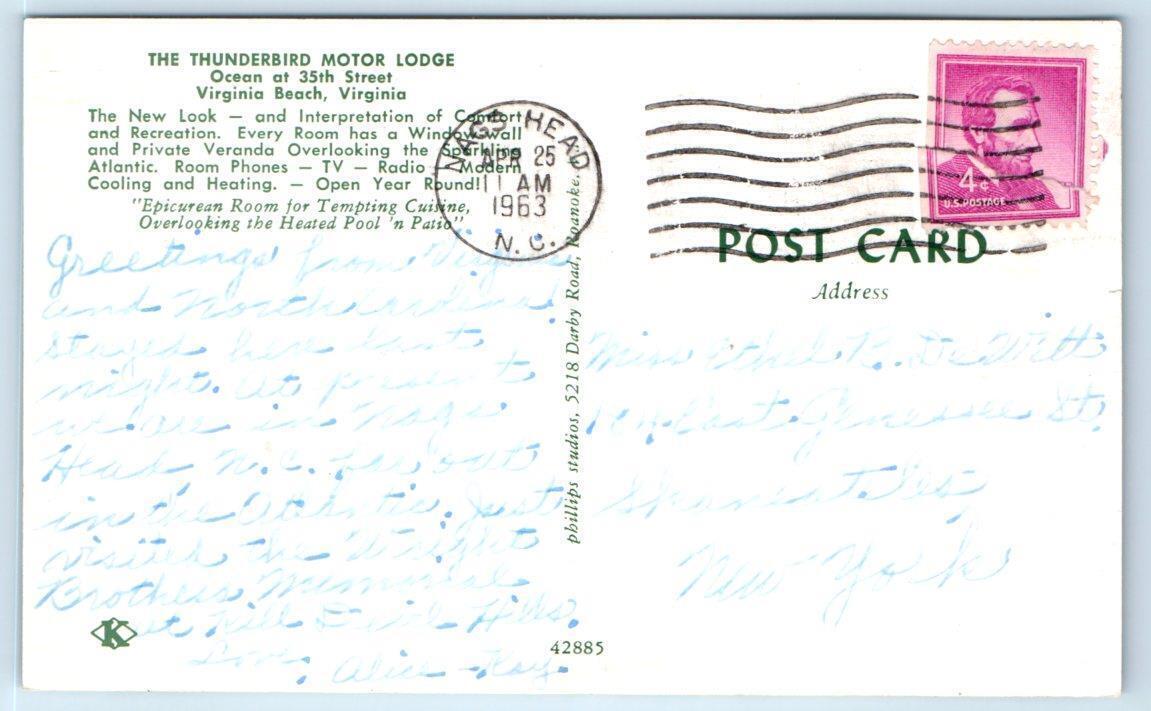 THE THUNDERBIRD MOTOR LODGE
Ocean at 35th Street
Virginia Beach, Virginia
The New Look — and Interpretation of Comfort
and Recreation. Every Room has a Window-wall
and Private Veranda Overlooking the Sparkling
Atlantic. Room Phones — TV — Radio — Modern
Cooling and Heating. — Open Year Round!
"Epicurean Room for Tempting Cuisine,
Overlooking the Heated Pool 'n Patio"
Greetings from Virginia
and North Carolina!
Stayed here last
night. At present
we are in Nags
Head N.C. far out
in the Atlantic. Just
visited the Wright
Brothers Memorial
at Kill Devil Hills.
Love, Alice - Kay.
K
42885
phillips studios, 5218 Darby Road, Roanoke,
NAGS HEAD
APR 25
11 AM
1963
N.C.
4¢
U.S. POSTAGE
POST CARD
Address
Miss Ethel R. DeWitt
East Genessee St.
Skaneatiles
New York